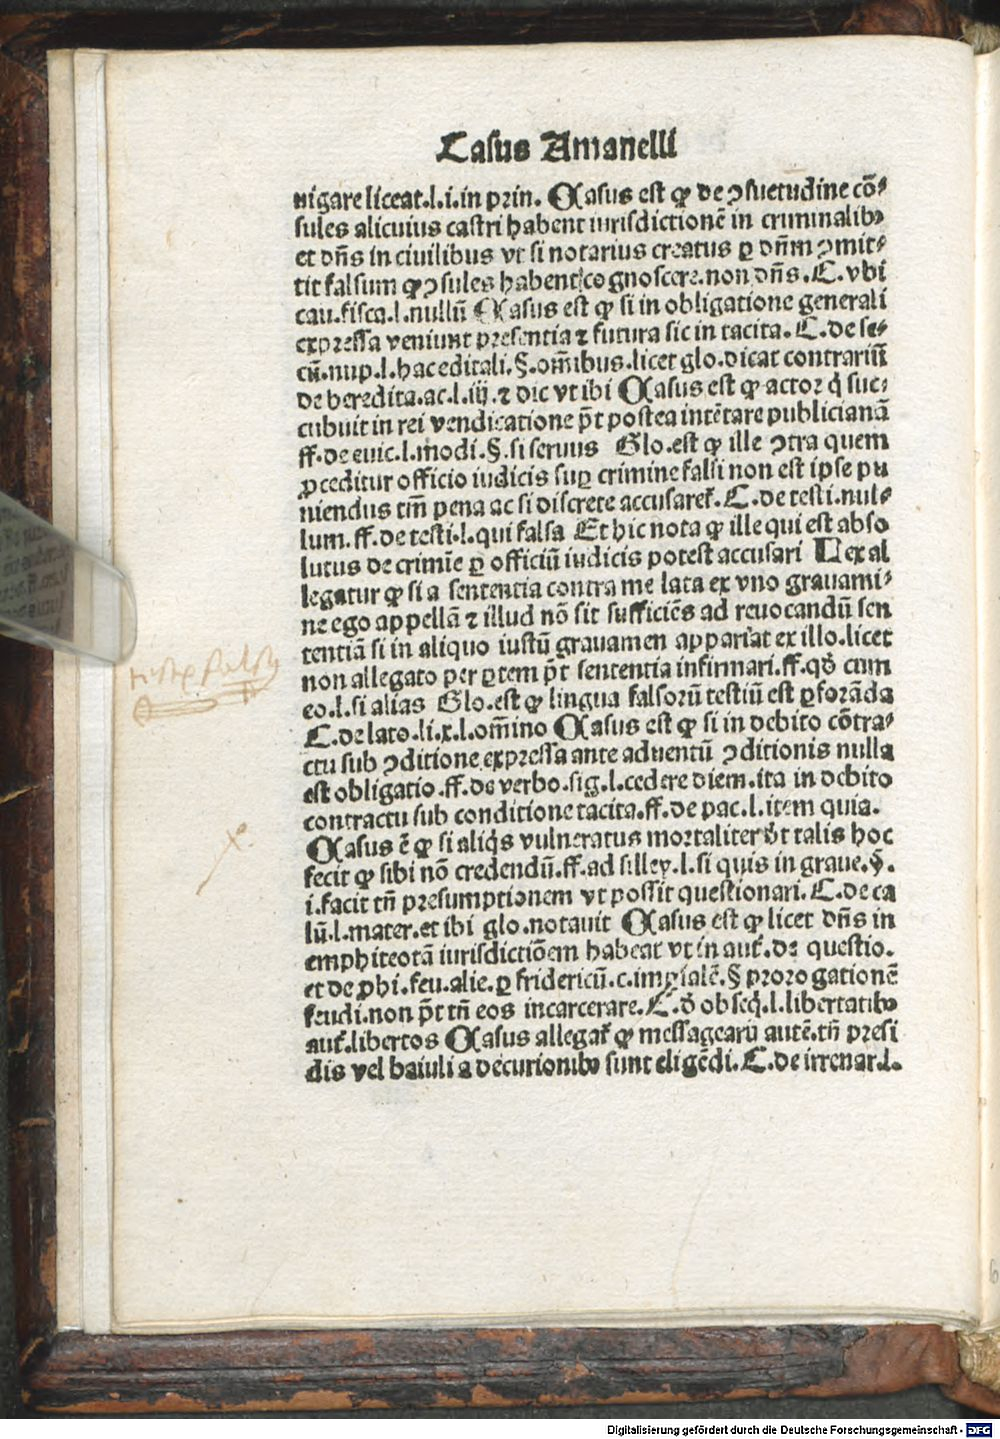 Casus Amanelli
nigare liceat.l.i.in prin. Casus est ꝙ de ↄsuetudine cō⸗
sules alicuius castri habent iurisdictionē in criminalibꝰ
et dn̄s in ciuilibus vt si notarius creatus ꝑ dn̄m ↄmit⸗
tit falsum ꝙ ↄsules habent cognoscere.non dn̄s.C.vbi
cau.fisca.l.nullū Casus est ꝙ si in obligatione generali
expressa veniunt presentia ⁊ futura sic in tacita.C.de se⸗
cū.nup.l.hac edictali.§.om̄ibus.licet glo.dicat contrariū
de heredita.ac.l.iij.⁊ dic vt ibi Casus est ꝙ actor q̇ suc⸗
cubuit in rei vendicatione pōt postea intētare publicianā
ff.de euic.l.modi.§.si seruus Glo.est ꝙ ille ↄtra quem
ꝓceditur officio iudicis suꝑ crimine falsi non est ipse pu
niendus tm̄ pena ac si discrete accusaret̄.C.de testi.nul⸗
lum.ff.de testi.l.qui falsa Et hic nota ꝙ ille qui est abso
lutus de crimīe ꝑ officiū iudicis potest accusari Lex al
legatur ꝙ si a sententia contra me lata ex vno grauami⸗
ne ego appellā ⁊ illud nō sit sufficiēs ad reuocandū sen
tentiā si in aliquo iustū grauamen appariat ex illo.licet
non allegato per ꝑtem pōt sententia infirmari.ff.qd̄ cum
eo.l.si alias Glo.est ꝙ lingua falsorū testiū est ꝑforāda
C.de lato.li.x.l.om̄ino Casus est ꝙ si in debito cōtra⸗
ctu sub ↄditione expressa ante aduentū ↄditionis nulla
est obligatio.ff.de verbo.sig.l.cedere diem.ita in debito
contractu sub conditione tacita.ff.de pac.l.item quia.
Casus ē ꝙ si aliq̇s vulneratus mortaliter dt̄ talis hoc
fecit ꝙ sibi nō credendū.ff.ad silley.l.si quis in graue.§.
i.facit tn̄ presumptionem vt possit questionari.C.de ca
lū.l.mater.et ibi glo.notauit Casus est ꝙ licet dn̄s in
emphiteotā iurisdictiōem habeat vt in aut̄.de questio.
et de ꝓhi.feu.alie.ꝑ fridericū.c.imꝑialē.§ prorogationē
feudi.non pōt tn̄ eos incarcerare.C.d̄ obseq̄.l.libertatibꝰ
aut̄.libertos Casus allegat̄ ꝙ messagearū autē.tn̄ presi
dis vel baiuli a decurionibꝰ sunt eligēdi.C.de irrenar.l.
Digitalisierung gefördert durch die Deutsche Forschungsgemeinschaft - DFG